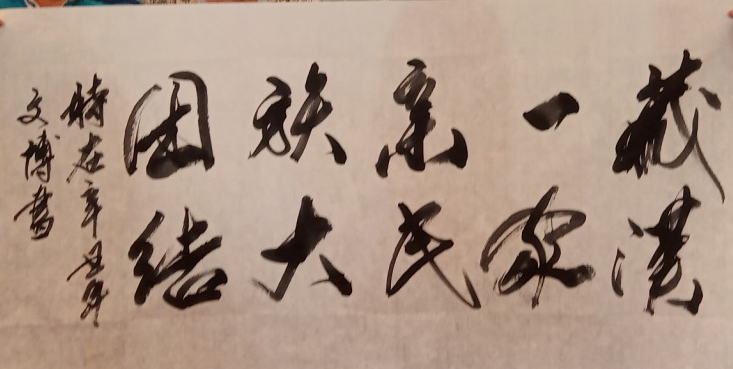 藏漢
一家
亲民
族大
团结
時在辛丑年
文博書